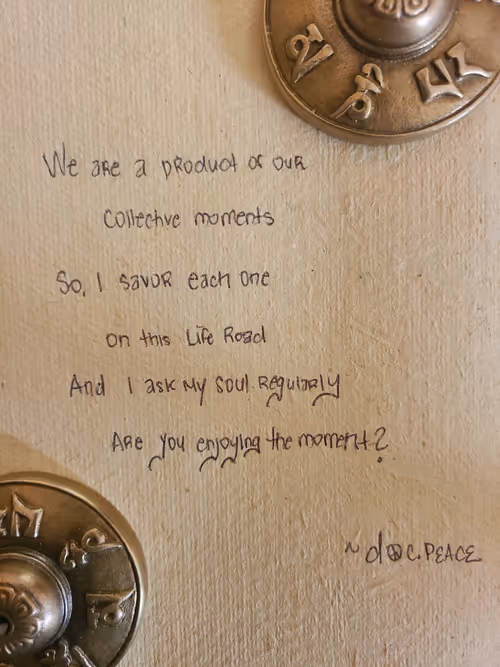 We are a product of our
Collective moments
So, I savor each one
on this Life Road
And I ask My Soul Regularly
Are you enjoying the moment?
~ doc.PEACE